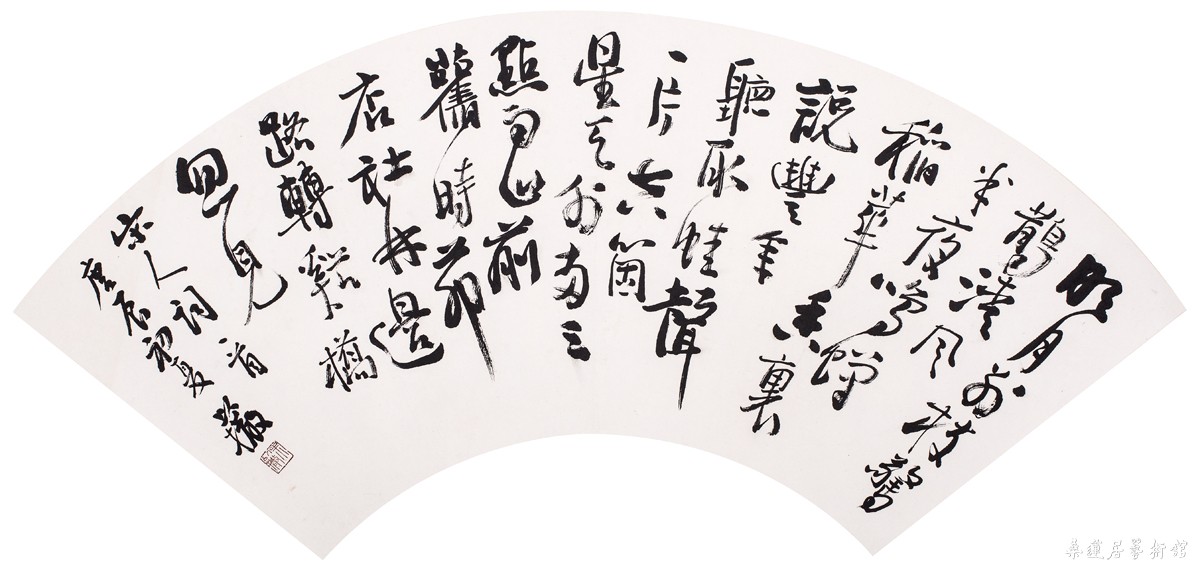 明月別枝驚
鵲清風
半夜鳴蟬
稻華香裏
說豐年
聽取蛙聲
一片七八箇
星天外兩三
點雨山前
舊時茅
店社林邊
路轉谿橋
忽見
宋人詞一首
庚辰初夏
桑蓮居藝術館